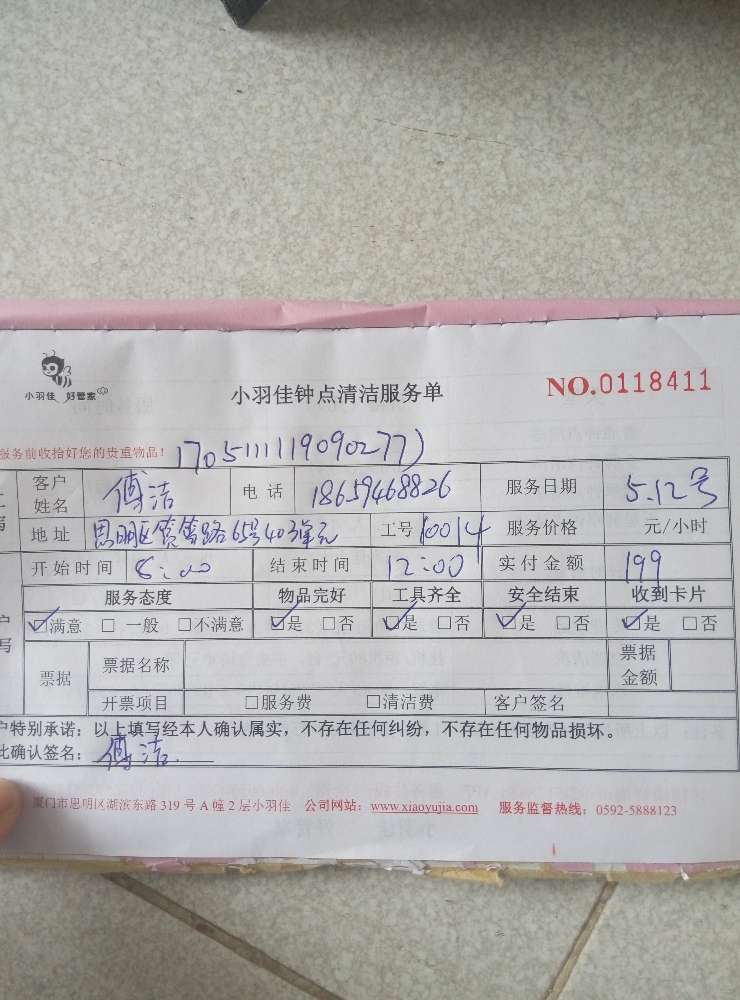 小羽佳 好管家
小羽佳钟点清洁服务单
NO.0118411
服务前收拾好您的贵重物品!
1705111119090277)
客户姓名 傅洁 电话 18659468826 服务日期 5.12号
地址 思明区 路65号403单元 工号 10014 服务价格 元/小时
开始时间 8:00 结束时间 12:00 实付金额 199
服务态度 物品完好 工具齐全 安全结束 收到卡片
☑满意 □一般 □不满意 ☑是 □否 ☑是 □否 ☑是 □否 ☑是 □否
票据 票据名称 票据金额
开票项目 □服务费 □清洁费 客户签名
户特别承诺:以上填写经本人确认属实,不存在任何纠纷,不存在任何物品损坏。
此确认签名:傅洁
厦门市思明区湖滨东路 319 号 A 幢 2 层小羽佳 公司网站:www.xiaoyujia.com 服务监督热线:0592-5888123